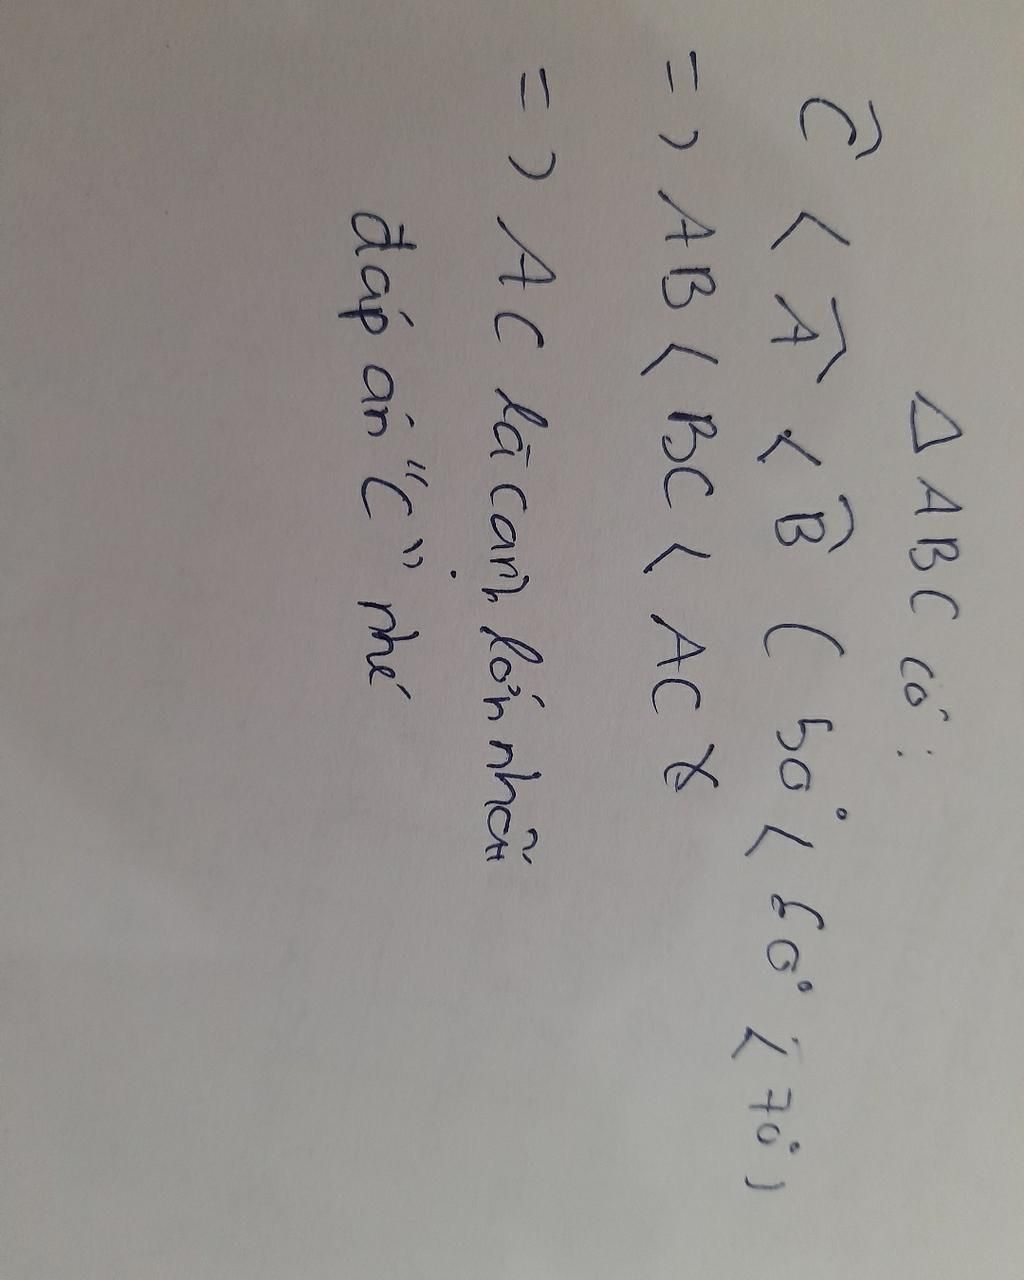 Δ ABC có :
Ĉ < Â < B̂ ( 50° < 60° < 70° )
=> AB < BC < AC
=> AC là cạnh lớn nhất
đáp án "C" nhé